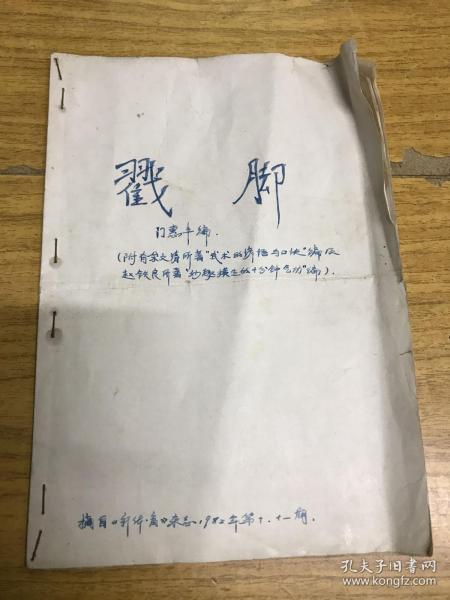 戳脚
门惠丰编.
(附有蔡文 所著"武术的 与口诀"编及
赵铁良所著"秒 的十分钟气功"编).
摘自《新体育》杂志,1982年第十.十一期.
孔夫子旧书网
www.kongfz.com